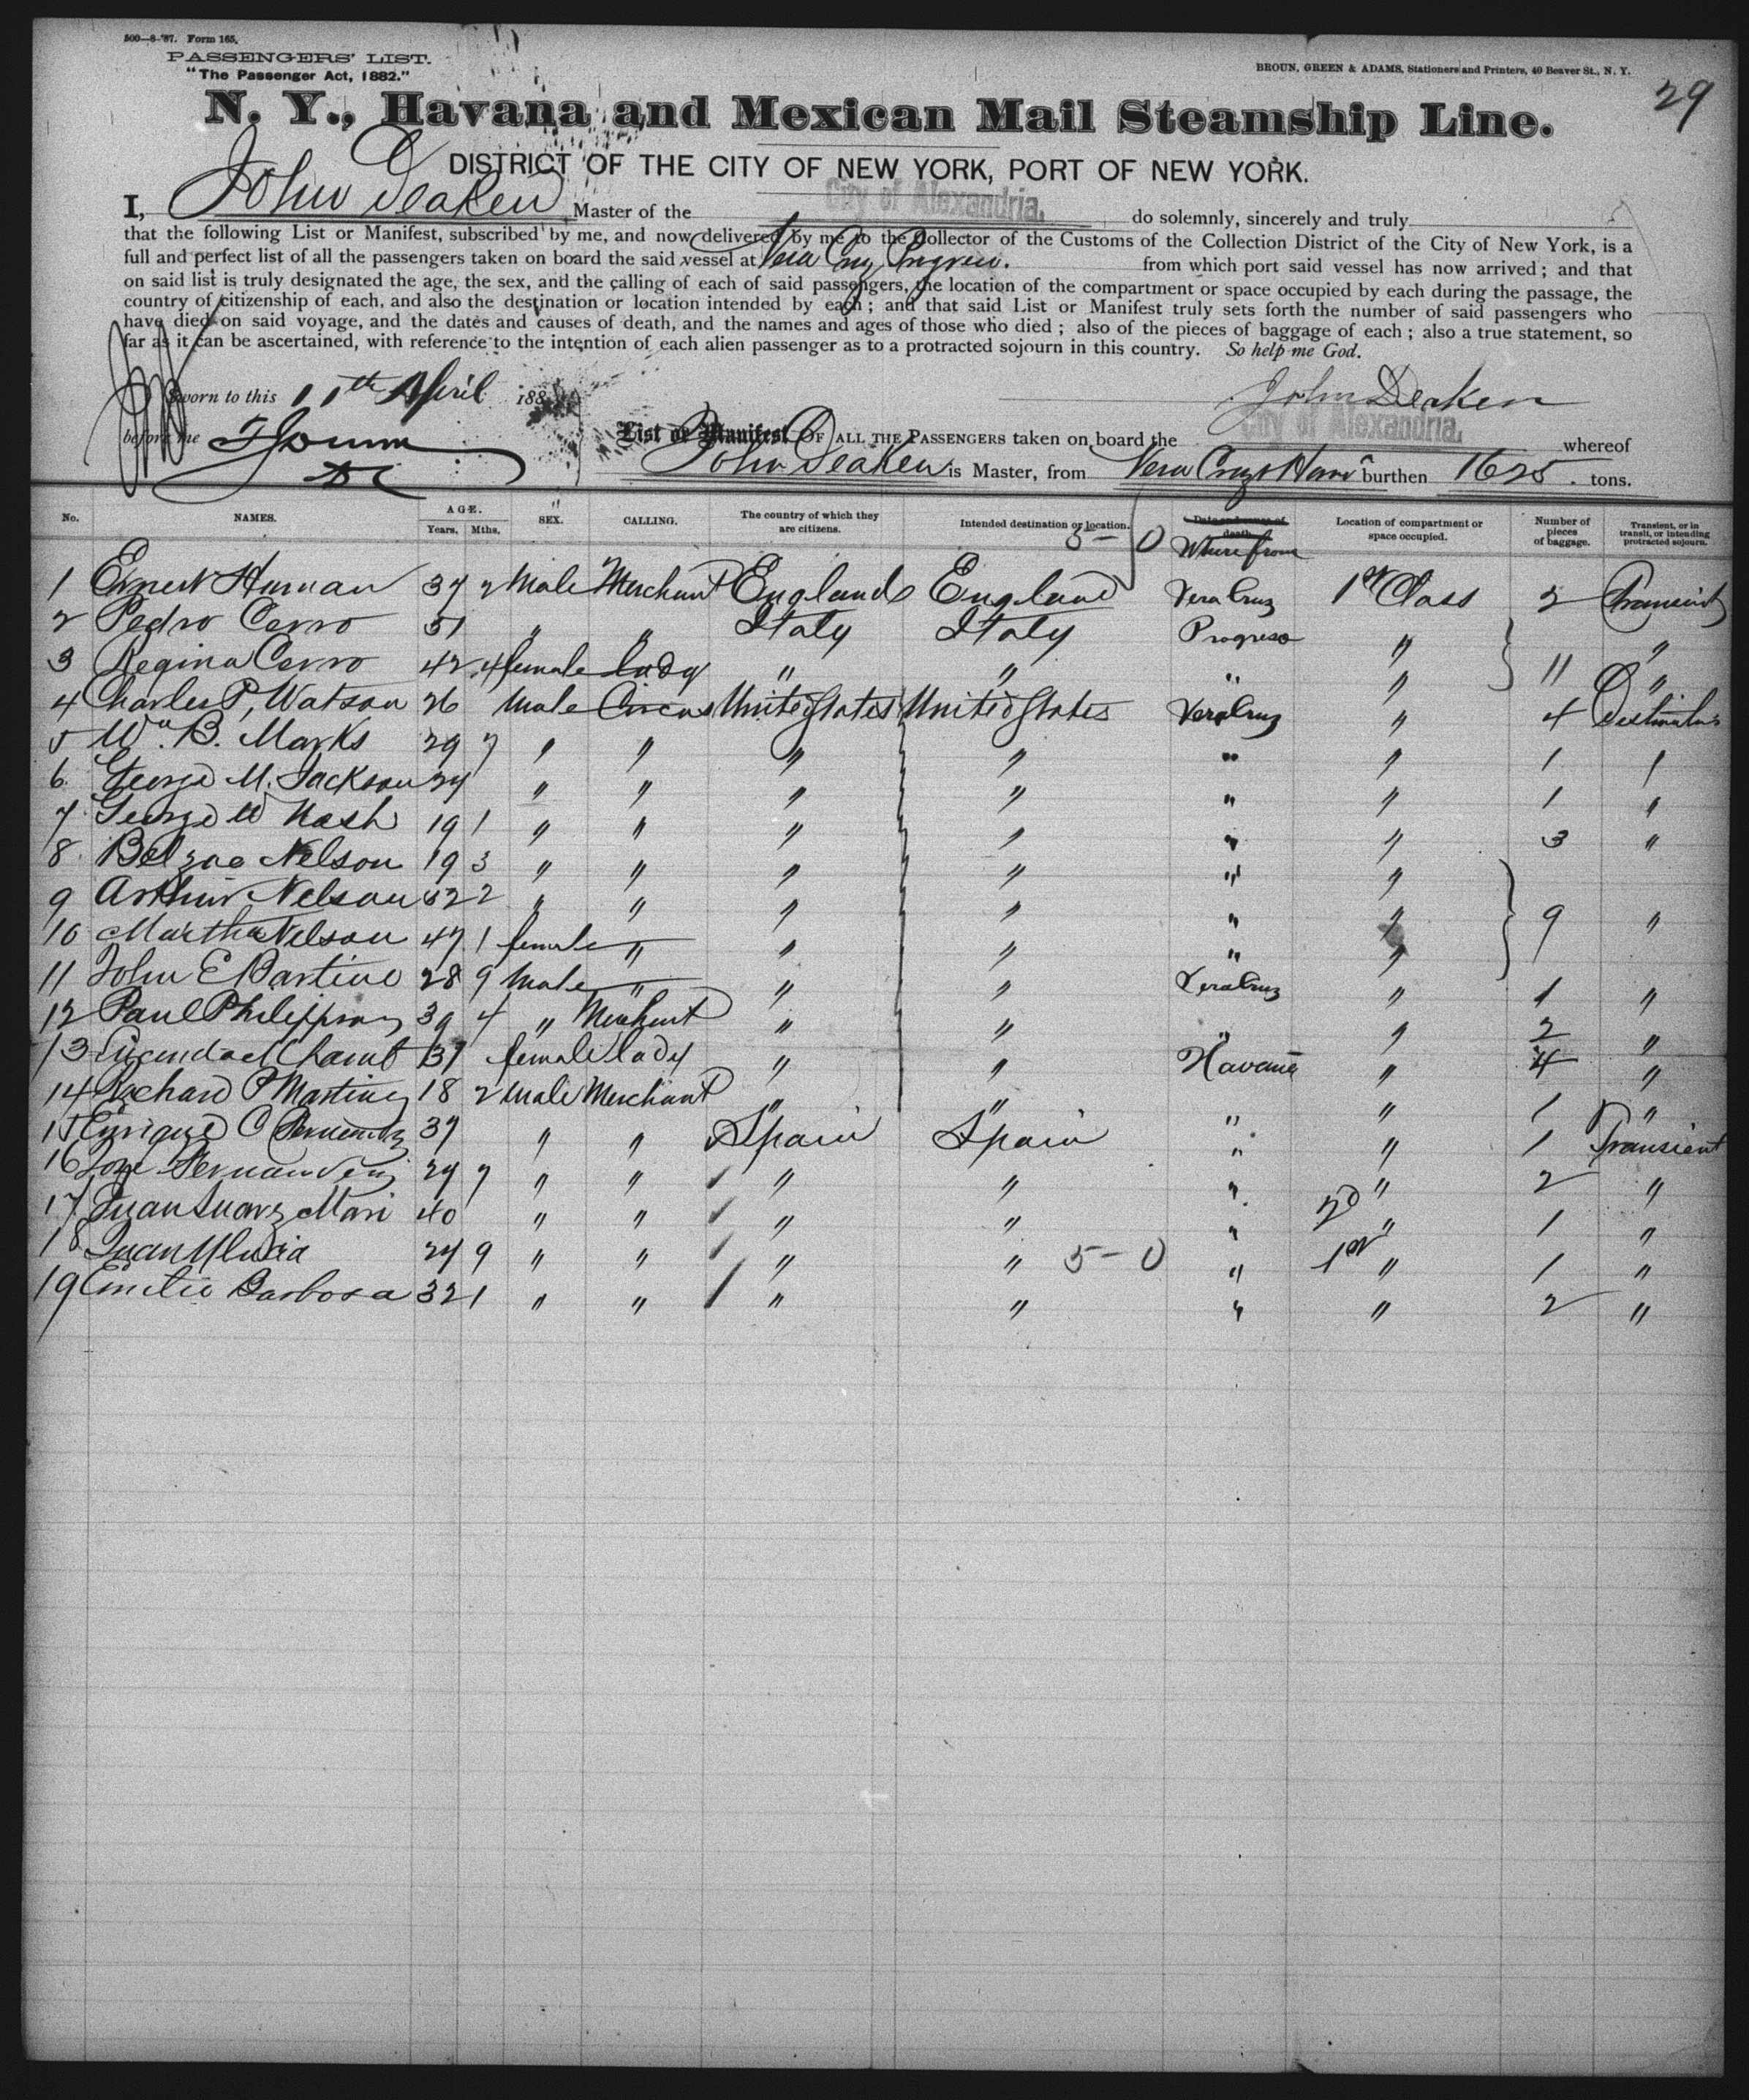 500—6-'87. Form 165.
PASSENGERS' LIST.
"The Passenger Act, 1882."
BROUN, GREEN & ADAMS, Stationers and Printers, 40 Beaver St., N. Y.
29
N. Y., Havana and Mexican Mail Steamship Line.
DISTRICT OF THE CITY OF NEW YORK, PORT OF NEW YORK.
I, John Deaken Master of the City of Alexandria. do solemnly, sincerely and truly
that the following List or Manifest, subscribed by me, and now delivered by me to the Collector of the Customs of the Collection District of the City of New York, is a
full and perfect list of all the passengers taken on board the said vessel at Vera Cruz, Progreso. from which port said vessel has now arrived; and that
on said list is truly designated the age, the sex, and the calling of each of said passengers, the location of the compartment or space occupied by each during the passage, the
country of citizenship of each, and also the destination or location intended by each; and that said List or Manifest truly sets forth the number of said passengers who
have died on said voyage, and the dates and causes of death, and the names and ages of those who died; also of the pieces of baggage of each; also a true statement, so
far as it can be ascertained, with reference to the intention of each alien passenger as to a protracted sojourn in this country. So help me God.
Sworn to this 11th April 188
John Deaken
before me
List or Manifest OF ALL THE PASSENGERS taken on board the City of Alexandria. whereof
John Deaken is Master, from Vera Cruz & Hava burthen 1625 tons.
No. NAMES. AGE. Years. Mths. SEX. CALLING. The country of which they are citizens. Intended destination or location. Date and cause of death. Where from Location of compartment or space occupied. Number of pieces of baggage. Transient, or in transit, or intending protracted sojourn.
5-0
1 Ernest Human 37 2 Male Merchant England England Vera Cruz 1st Class 2 Transient
2 Pedro Cerro 51 " " Italy Italy Progreso " "
3 Regina Cerro 42 4 female lady " " " " 11 "
4 Charles P. Watson 26 Male Circus United States United States Vera Cruz " 4
5 Wm. B. Marks 29 7 " " " " " " 1 "
6 George M. Jackson 24 " " " " " " 1 "
7 George W Nash 19 1 " " " " " " 3 "
8 Belzac Nelson 19 3 " " " " " "
9 Arthur Nelson 52 2 " " " " " " 9 "
10 Martha Nelson 47 1 female " " " " "
11 John E Bartine 28 9 Male " " " Vera Cruz " 1 "
12 Paul Philippson 39 4 " Merchant " " " " 2 "
13 37 female lady " " Havana " 4 "
14 Richard P Martinez 18 2 Male Merchant " " " " 1 "
15 Enrique C Fernandez 37 " " Spain Spain " " 1 Transient
16 Jose Fernandez 29 7 " " " " " " 2 "
17 Juan Suarez Mari 40 " " " " " 2d " 1 "
18 Juan Ulucia 24 9 " " " " 5-0 " 1st " 1 "
19 Emilio Barbosa 32 1 " " " " " " 2 "